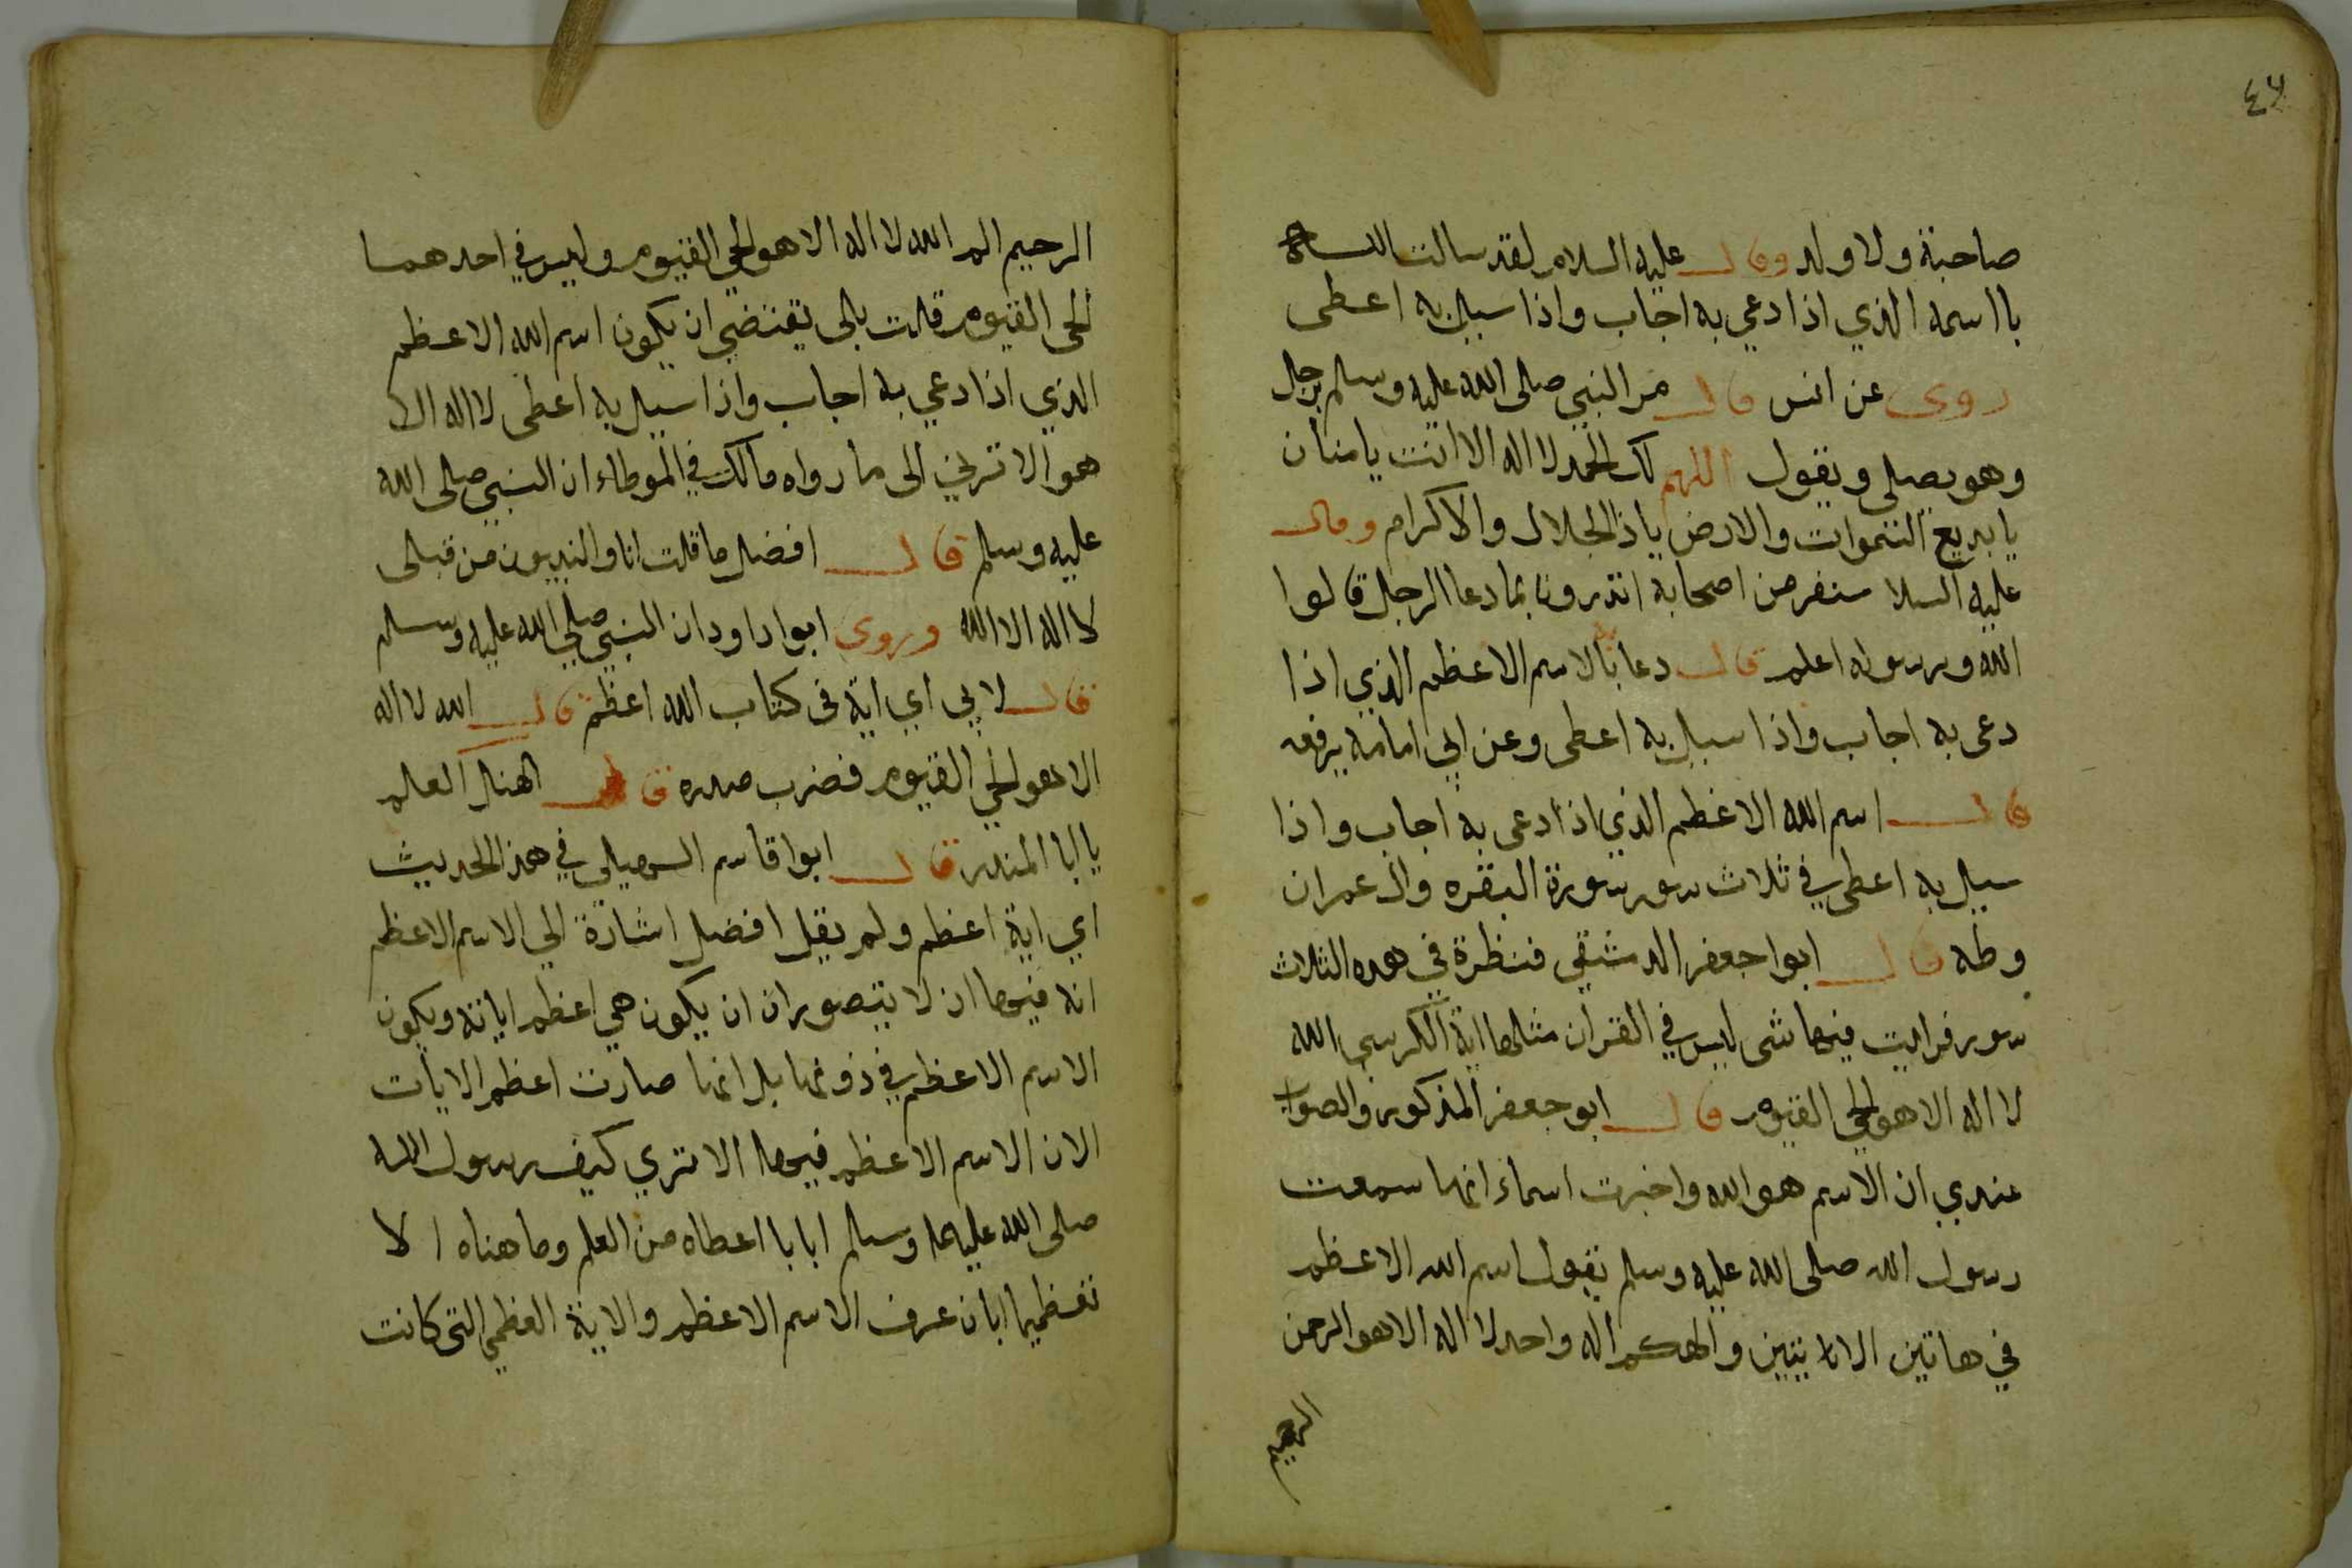 ٤٦
صاحبة ولا ولد وقال عليه السلام لقد سالت الله
با اسمه الذي اذا دعي به اجاب واذا سيل به اعطى
روى عن انس قال مر النبي صلى الله عليه وسلم برجل
وهو يصلي ويقول اللهم لك الحمد لا اله الا انت يا منان
يا بديع السموات والارض يا ذا الجلال والاكرام وقال
عليه السلا سنفر من اصحابه اتدرون بما دعا الرجل قالوا
الله ورسوله اعلم قال دعا بالاسم الاعظم الذي اذا
دعى به اجاب واذا سيل به اعطى وعن ابي امامه يرفعه
قال اسم الله الاعظم الذي اذا دعى به اجاب واذا
سيل به اعطى في ثلاث سور سورة البقره وال عمران
وطه قال ابوا جعفر الدمشقي فنظرة في هده الثلاث
سور فرايت فيها شى ليس في القران مثلها اية الكرسي الله
لا اله الا هو الحي القيوم قال ابو جعفر المذكور والصواب
عندي ان الاسم هو الله واخبرت اسماء انها سمعت
رسول الله صلى الله عليه وسلم يقول اسم الله الاعظم
في هاتين الايتين والهكم اله واحد لا اله الا هو الرحمن
الرحيم
الرحيم الم الله لا اله الا هو الحي القيوم وليس في احدهما
الحى القيوم قلت بلى يقتضي ان يكون اسم الله الاعظم
الذي اذا دعي به اجاب واذا سيل به اعطى لا اله الا
هو الا ترى الى ما رواه مالك في الموطاء ان النبي صلى الله
عليه وسلم قال افضل ما قلت انا والنبيون من قبلى
لا اله الا الله وروى ابوا داود ان النبي صلى الله عليه وسلم
قال لابي اي اية فى كتاب الله اعظم قال الله لا اله
الا هو الحي القيوم فضرب صدره قال ليهنك العلم
يا ابا المنذر قال ابوا قاسم السهيلي في هذا الحديث
اي اية اعظم ولم يقل افضل اشارة الي الاسم الاعظم
انه فيها اذ لا يتصور ان ان يكون هي اعظم اياته ويكون
الاسم الاعظم في دونها بل انما صارت اعظم الايات
الان الاسم الاعظم فيها الا تري كيف رسول الله
صلى الله عليه وسلم ابا با اعطاه من العلم وما هناه الا
تعظيما ابان عرف الاسم الاعظم والاية العظمي التى كانت